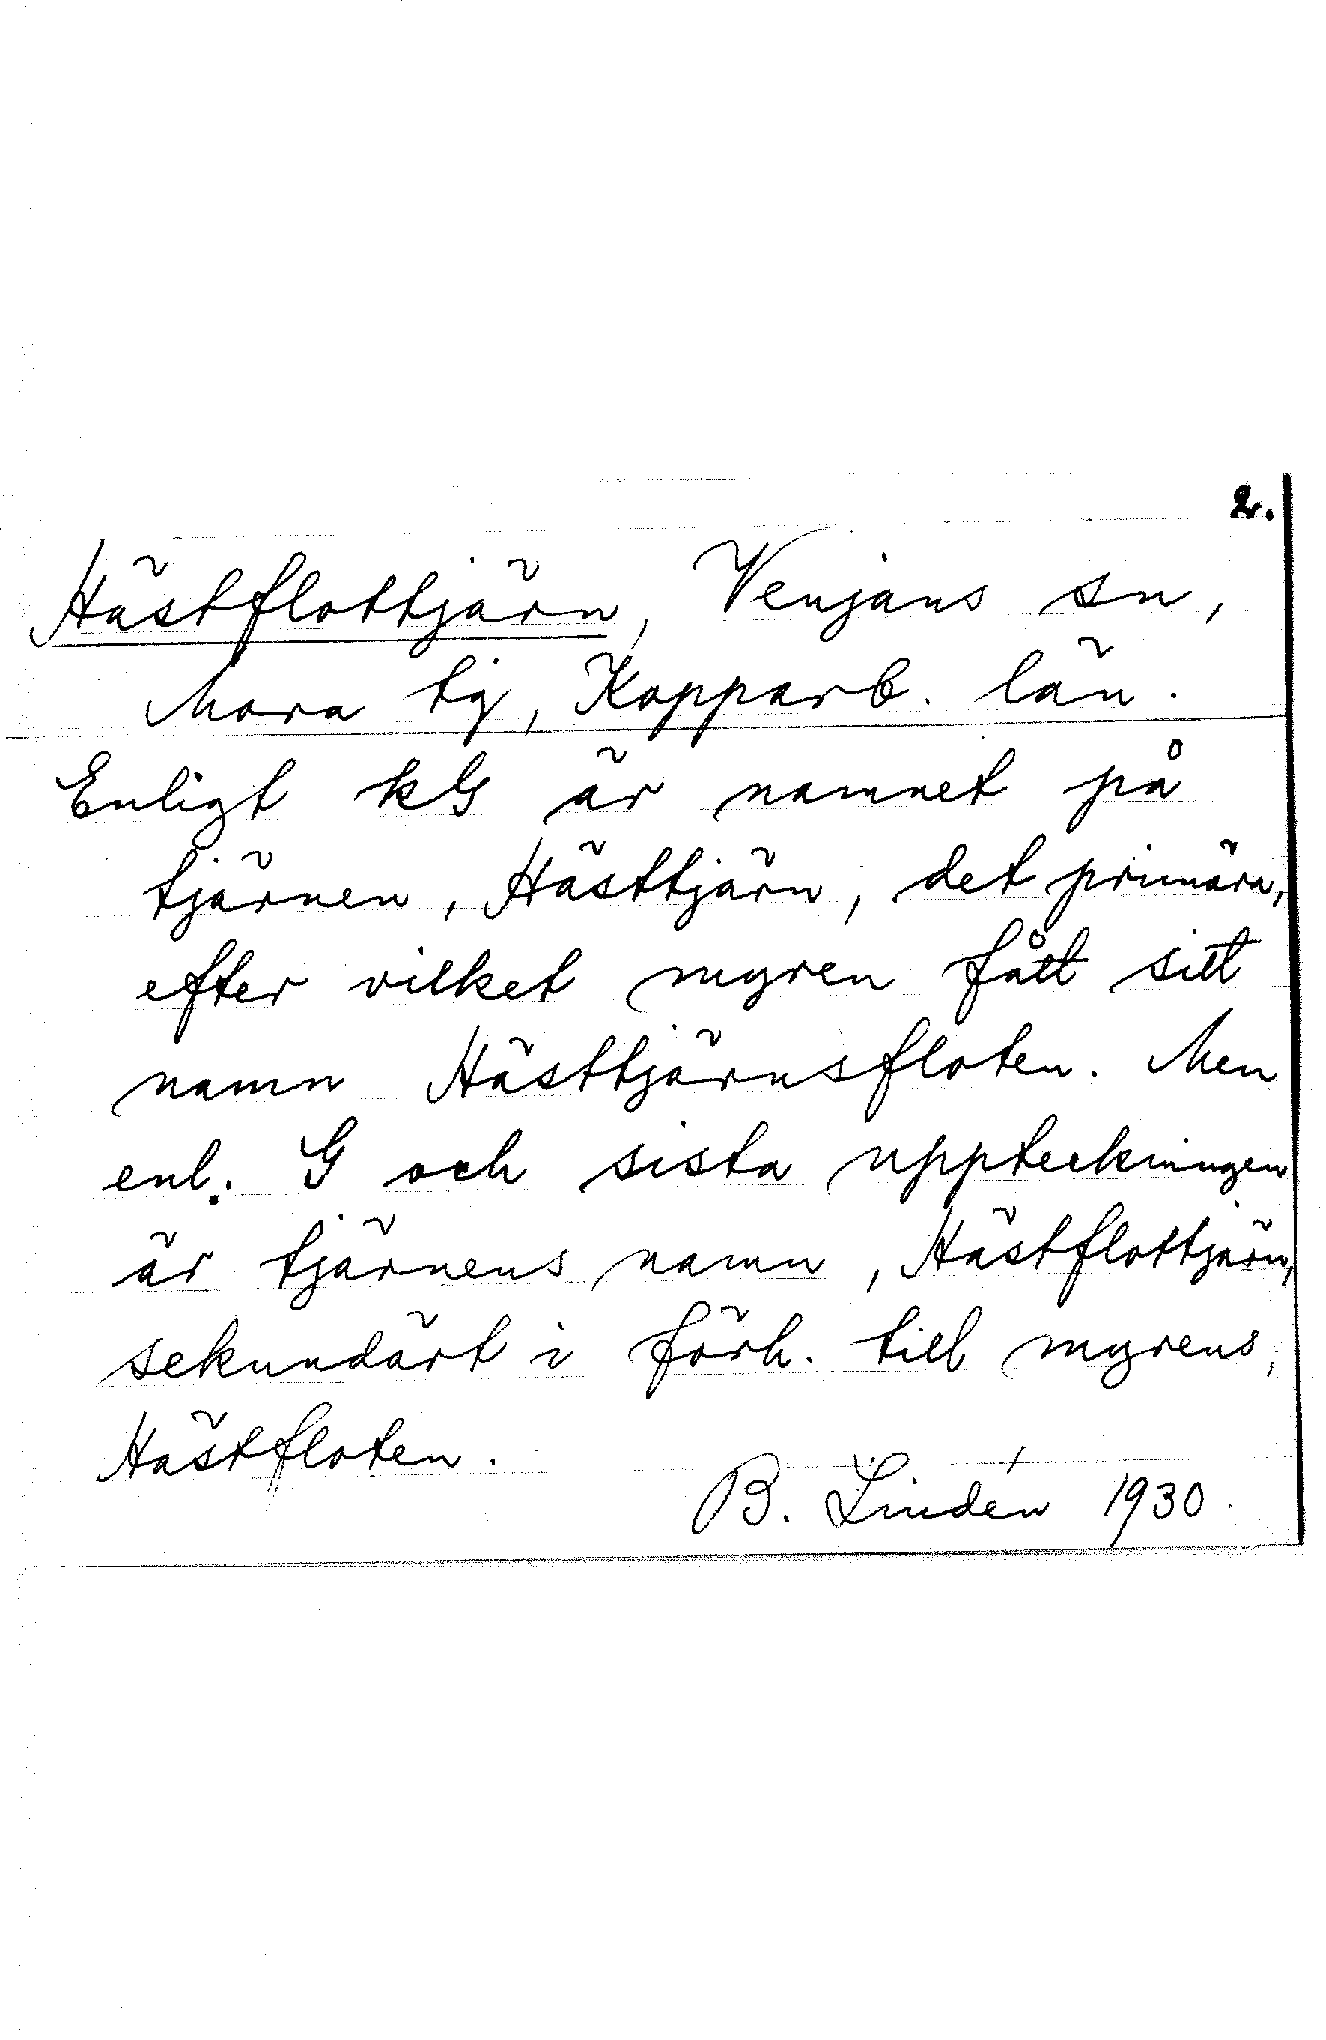 2.
Hästflottjärn, Venjans sn,
Mora tg, Kopparb. län.
Enligt kG är namnet på
tjärnen, Hästtjärn, det primära,
efter vilket myren fått sitt
namn Hästtjärnsfloten. Men
enl. G och sista uppteckningen
är tjärnens namn, Hästflottjärn,
sekundärt i förh. till myrens,
Hästfloten.
B. Lindén 1930